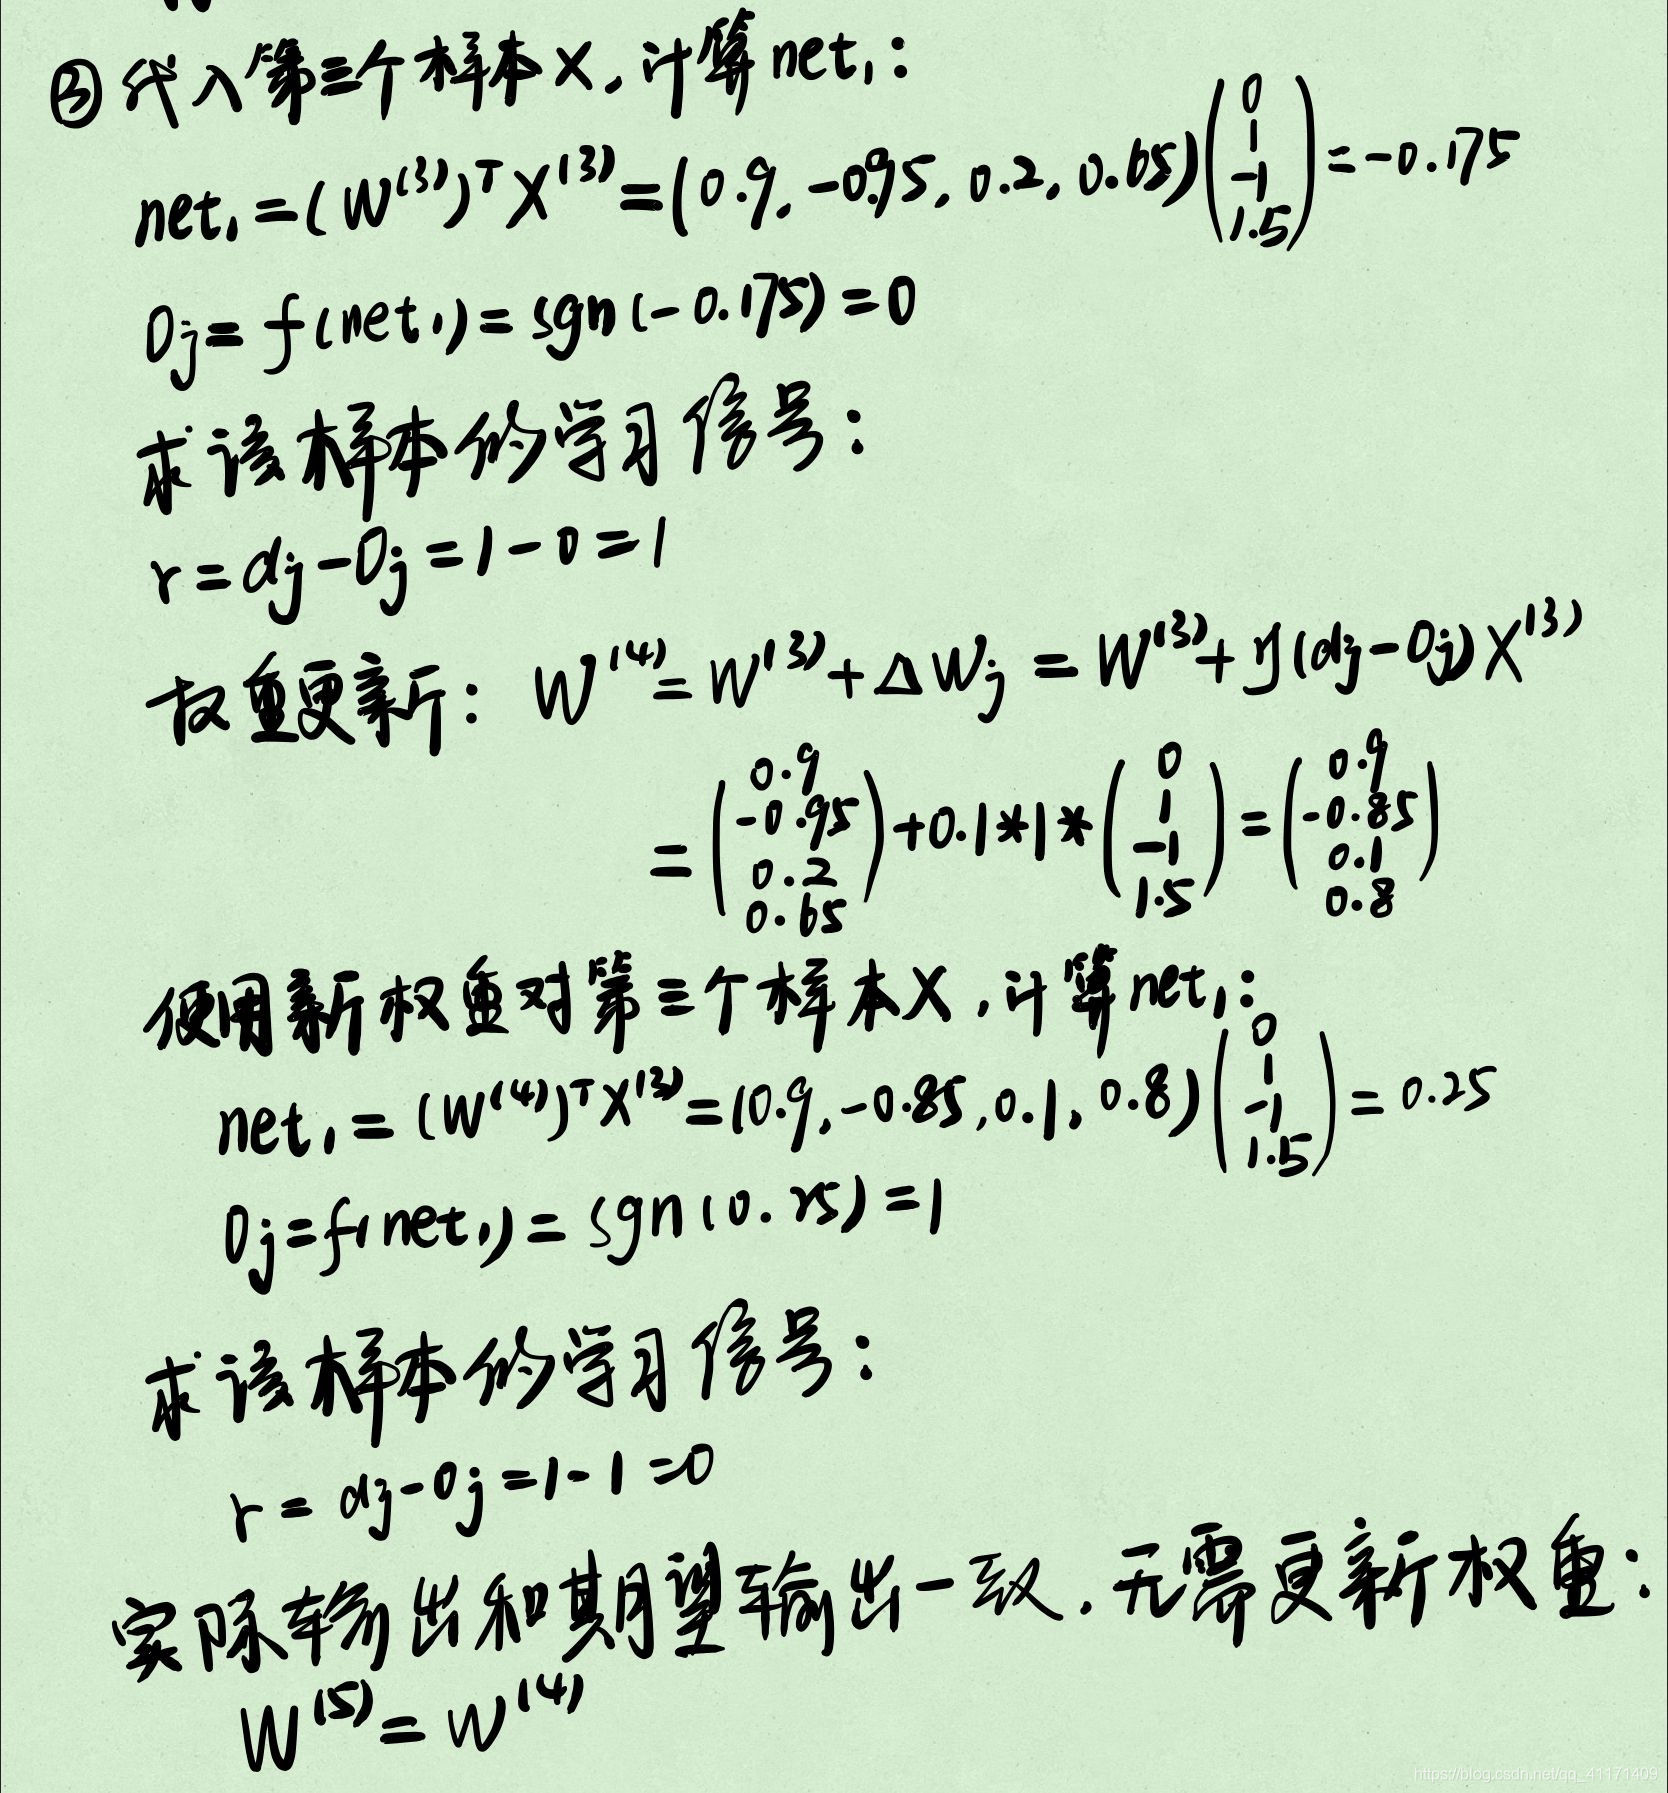 ③代入第三个样本X,计算net₁:
net₁=(W⁽³⁾)ᵀX⁽³⁾=(0.9, -0.95, 0.2, 0.65)(0 1 -1 1.5)=-0.175
Oj=f(net₁)=sgn(-0.175)=0
求该样本的学习信号:
r=dj-Oj=1-0=1
权重更新: W⁽⁴⁾=W⁽³⁾+ΔWj=W⁽³⁾+η(dj-Oj)X⁽³⁾
=(0.9 -0.95 0.2 0.65)+0.1*1*(0 1 -1 1.5)=(0.9 -0.85 0.1 0.8)
使用新权重对第三个样本X,计算net₁:
net₁=(W⁽⁴⁾)ᵀX⁽³⁾=(0.9, -0.85, 0.1, 0.8)(0 1 -1 1.5)=0.25
Oj=f(net₁)=sgn(0.25)=1
求该样本的学习信号:
r=dj-Oj=1-1=0
实际输出和期望输出一致,无需更新权重:
W⁽⁵⁾=W⁽⁴⁾
https://blog.csdn.net/qq_41171409